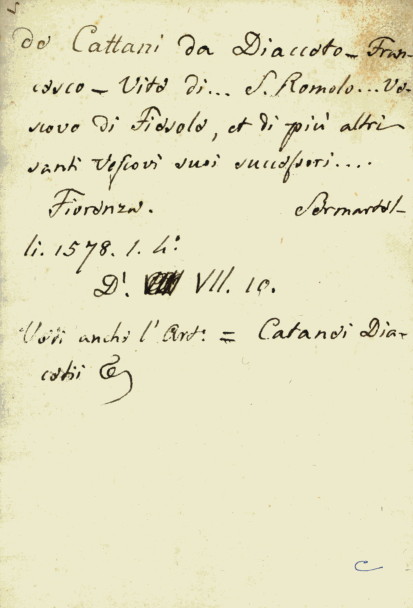 de Cattani da Diacceto - Fran-
cesco - Vita di... S. Romolo... Ve-
scovo di Fiesole, et di più altri
santi Vescovi suoi successori....
Fiorenza. Sermartel-
li. 1578. 1. 4°.
D'. VII. 10.
Vedi anche l'Art: = Catanei Dia-
cetii &
C